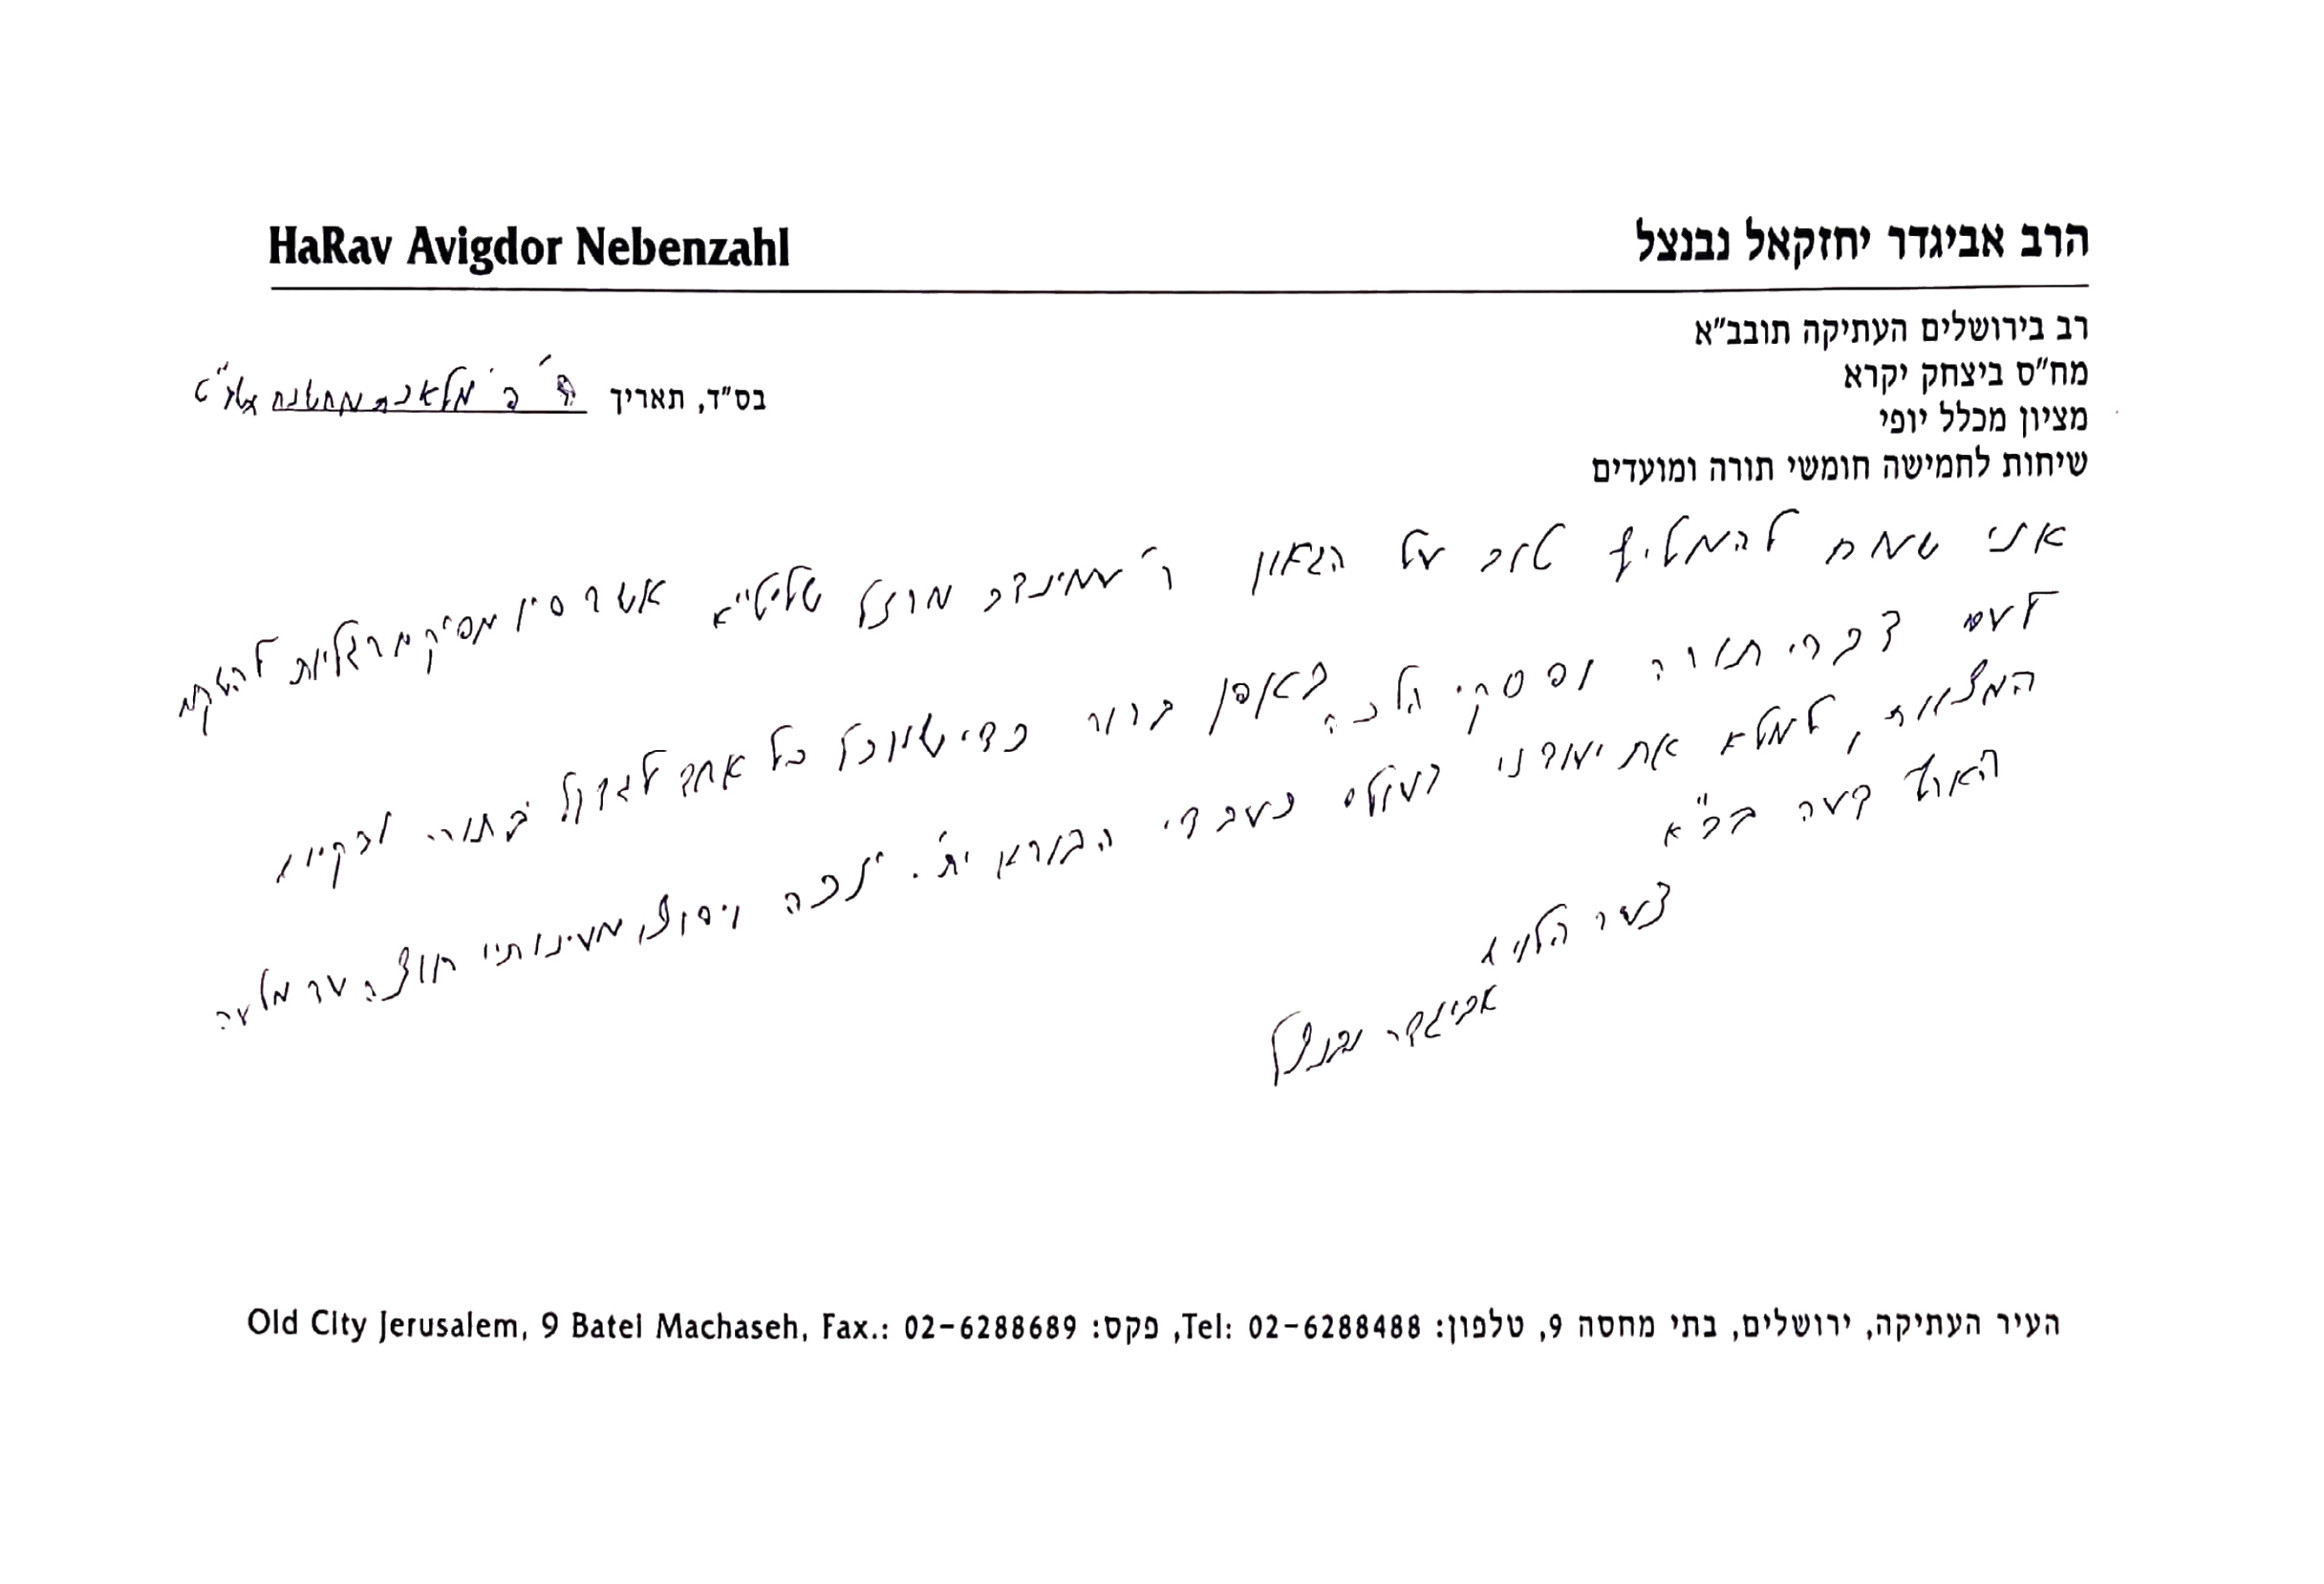 HaRav Avigdor Nebenzahl
הרב אביגדר יחזקאל נבנצל
רב בירושלים העתיקה תובב"א
מח"ס ביצחק יקרא
מציון מכלל יופי
שיחות לחמישה חומשי תורה ומועדים
בס"ד, תאריך מלאכת מחשבת
אני שמח להמליץ טוב על הגאון ר' עמינדב שליט"א אשר מפיק מרגליות
דברי תורה ופסקי הלכה באופן ברור כדי שיוכל כל אחד לגדול בתורה ובקיום
המצוות, למלא את יעודנו כעבדי הבורא ית'. יזכה ויפוצו מעינותיו חוצה עד
בב"א
הלוי
אביגדר נבנצל
העיר העתיקה, ירושלים, בתי מחסה 9, טלפון: Tel: 02-6288488, פקס: Old City Jerusalem, 9 Batei Machaseh, Fax.: 02-6288689